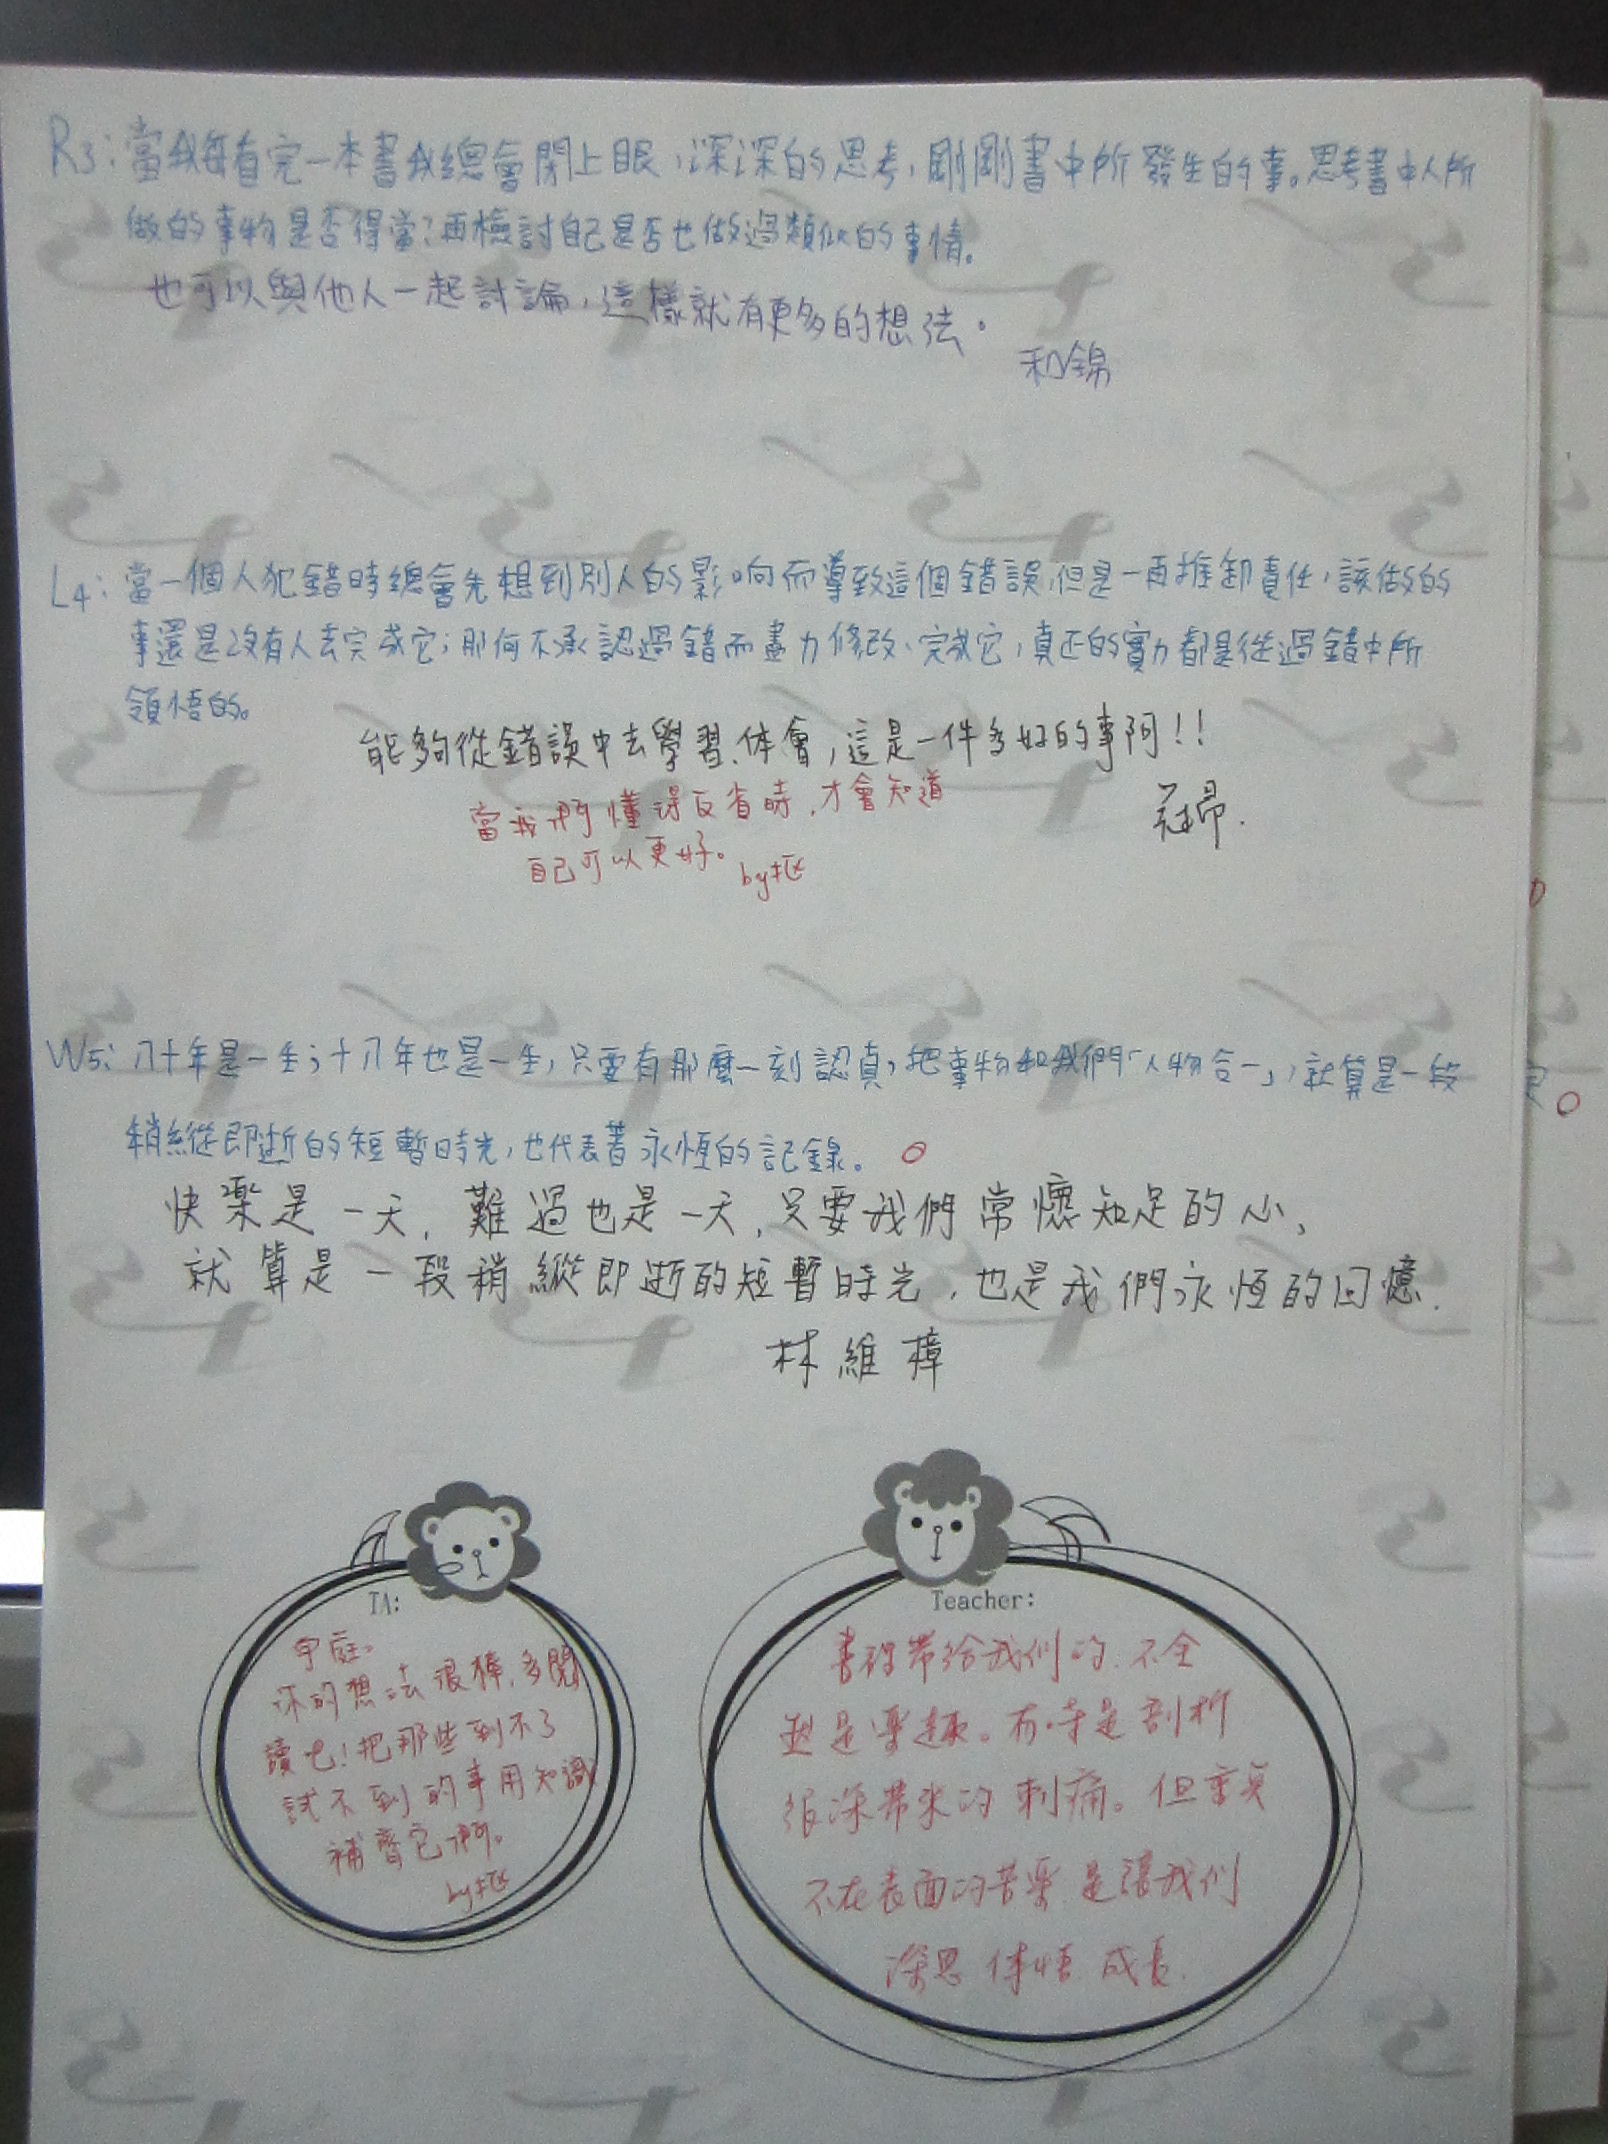 R3:當我每看完一本書我總會閉上眼,深深的思考,剛剛書中所發生的事。思考書中人所
做的事物是否得當?再檢討自己是否也做過類似的事情。
也可以與他人一起討論,這樣就有更多的想法。
和錦
L4:當一個人犯錯時總會先想到別人的影响而導致這個錯誤,但是一再推卸責任,該做的
事還是沒有人去完成它;那何不承認過錯而盡力修改、完成它,真正的實力都是從過錯中所
領悟的。
能夠從錯誤中去學習、体會,這是一件多好的事阿!!
當我們懂得反省時,才會知道
自己可以更好。
by
W5:八十年是一生;十八年也是一生,只要有那麼一刻認真,把事物和我們「人物合一」,就算是一段
稍縱即逝的短暫時光,也代表著永恆的記錄。
快樂是一天,難過也是一天,只要我們常懷知足的心,
就算是一段稍縱即逝的短暫時光,也是我們永恆的回憶.
林維樟
TA:
你的想法很棒,多閱
讀吧!把那些到不了
試不到的事用知識
補齊它們。
by
Teacher:
書裡帶給我们的.不全
然是樂趣。有时是剖析
很深帶來的刺痛。但重點
不在表面的苦樂.是讓我们
深思 体悟 成長.